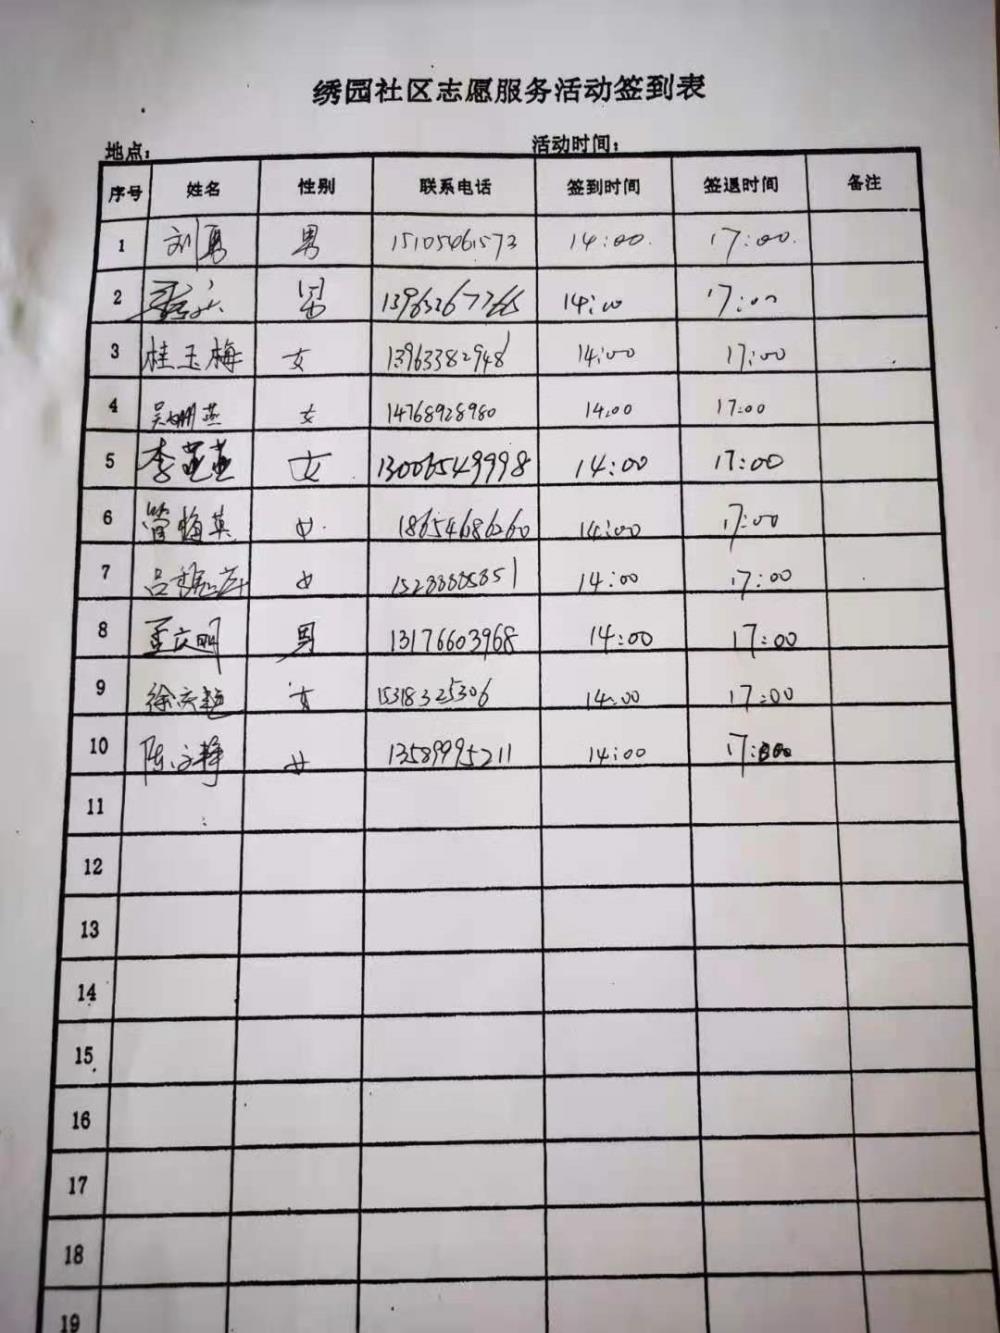 绣园社区志愿服务活动签到表
地点： 活动时间：
序号 姓名 性别 联系电话 签到时间 签退时间 备注
1 刘勇 男 15105461573 14:00. 17:00.
2 男 14:00 17:00
3 桂玉梅 女 13963382948 14:00 17:00
4 吴姗燕 女 14768928980 14:00 17:00
5 李 女 13006549998 14:00 17:00
6 管梅英 女. 18654686260 14:00 17:00
7 吕 女 14:00 17:00
8 孟庆明 男 13176603968 14:00 17:00
9 徐庆 女 15318325306 14:00 17:00
10 陈文静 女 13589995211 14:00 17:00
11
12
13
14
15
16
17
18
19